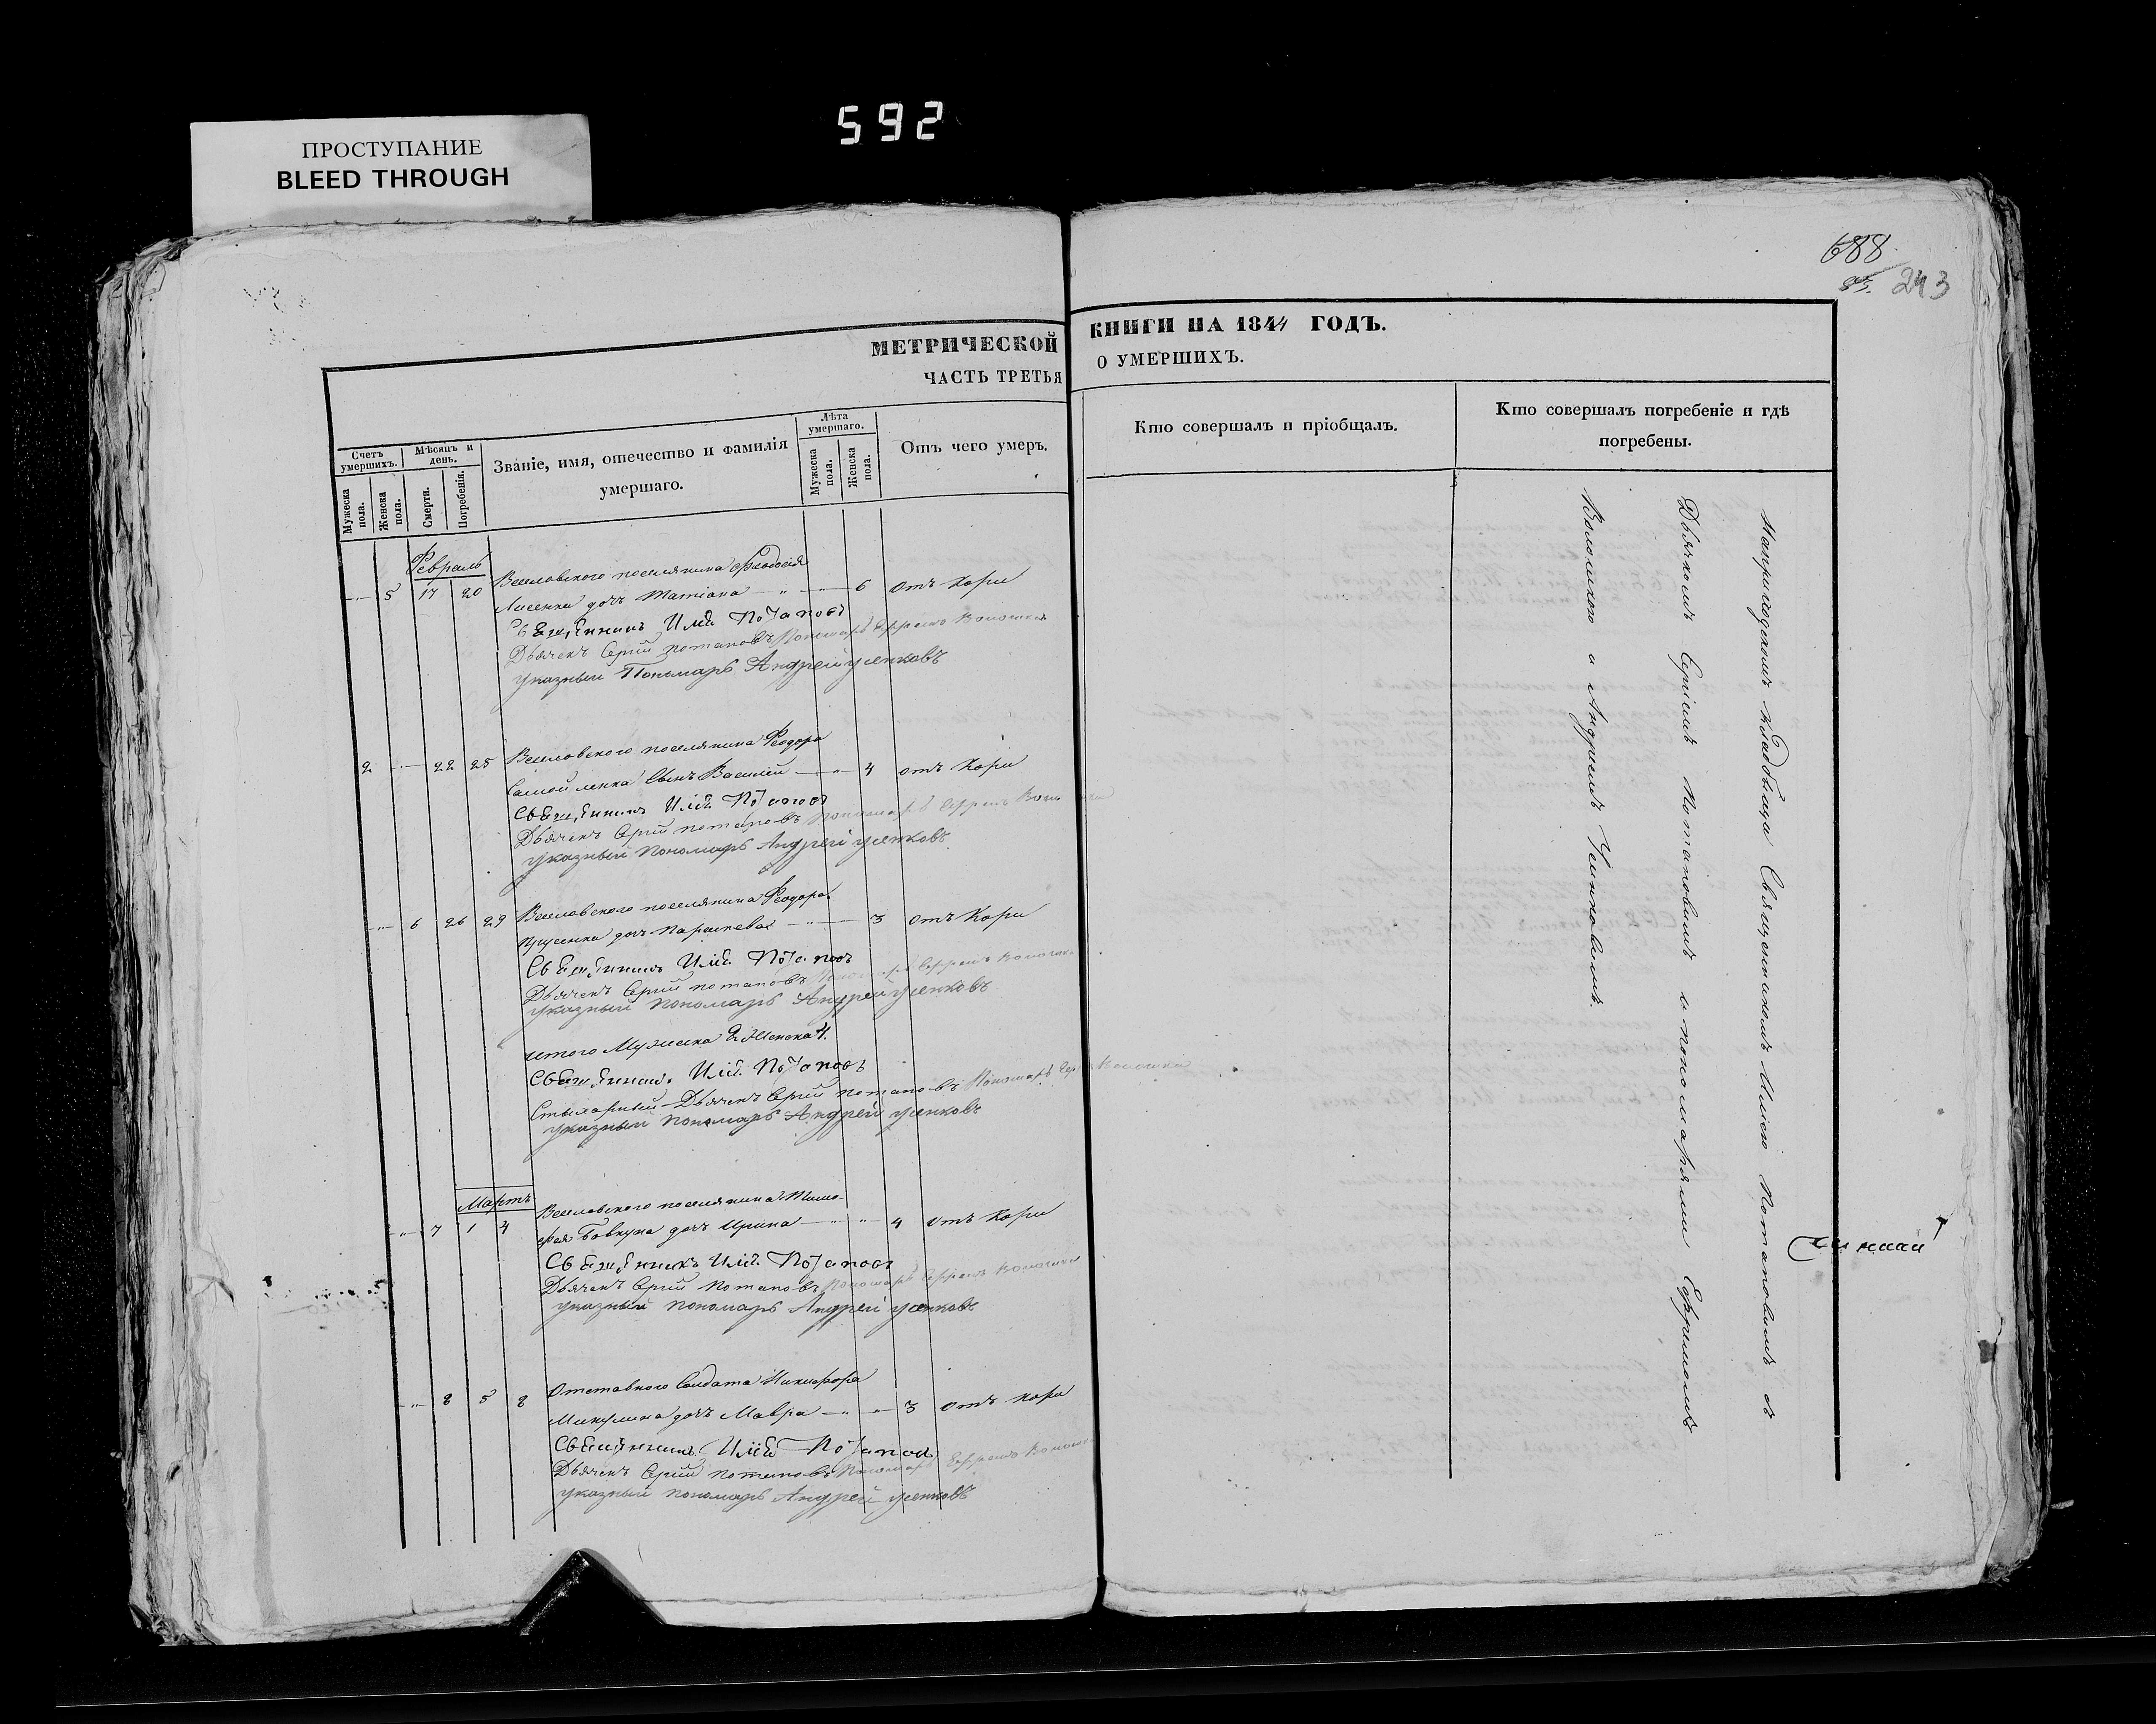 592
ПРОСТУПАНИЕ
BLEED THROUGH
688
243
МЕТРИЧЕСКОЙ
ЧАСТЬ ТРЕТЬЯ
Счетъ умершихъ.
Мужеска пола.
Женска пола.
Мѣсяцъ и день.
Смерти.
Погребенія.
Званіе, имя, отечество и фамилія
умершаго.
Лѣта умершаго.
Мужеска пола.
Женска пола.
Отъ чего умеръ.
Февраль
Веселовского поселянина Феодосія
5 17 20 Лисенка дочь Татіана 6 отъ Кори
Священникъ Илія Потаповъ
Дьячекъ Сергій Потаповъ Пономарь Ефремъ
указный Пономарь Андрей Усенковъ
Веселовского поселянина Феодора
2 22 25 Самойленка Сынъ Василій 4 отъ Кори
Священникъ Илія Потаповъ
Дьячекъ Сергій Потаповъ Пономарь Ефремъ
указный Пономарь Андрей Усенковъ
Веселовского поселянина Феодора
6 26 29 дочь Параскева 3 отъ Кори
Священникъ Илія Потаповъ
Дьячекъ Сергій Потаповъ Пономарь Ефремъ
указный Пономарь Андрей Усенковъ
итого Мужеска 2. Женска 4.
Священникъ Илія Потаповъ
Стихарный Дьячекъ Сергій Потаповъ Пономарь
указный Пономарь Андрей Усенковъ
Мартъ
Веселовского поселянина Тимо-
7 1 4 фея Бовкуна дочь Ирина 4 отъ Кори
Священникъ Илія Потаповъ
Дьячекъ Сергій Потаповъ Пономарь Ефремъ
указный Пономарь Андрей Усенковъ
Отставного Солдата Никифора
8 5 8 Микулина дочь Мавра 3 отъ Кори
Священникъ Илія Потаповъ
Дьячекъ Сергій Потаповъ Пономарь Ефремъ
указный Пономарь Андрей Усенковъ
КНИГИ НА 1844 ГОДЪ.
О УМЕРШИХЪ.
Кто совершалъ и пріобщалъ.
Кто совершалъ погребеніе и гдѣ
погребены.
На приходскомъ кладбища Священникомъ Иліею Потаповимъ съ
Дьячкомъ Сергіемъ Потаповимъ и пономарями Ефримомъ
и Андреемъ Усенковимъ.